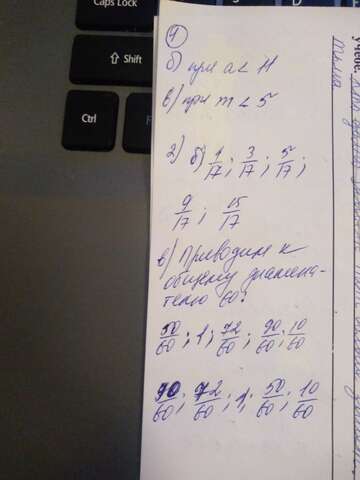 Caps Lock
⇧ Shift
Ctrl
1
б) при a < 11
в) при m < 5
2) б) 1/17; 3/17; 5/17;
9/17; 15/17
в) Приводим к
общему знамена-
телю 60:
50/60; 1; 72/60; 90/60; 10/60
90/60; 72/60; 1; 50/60; 10/60